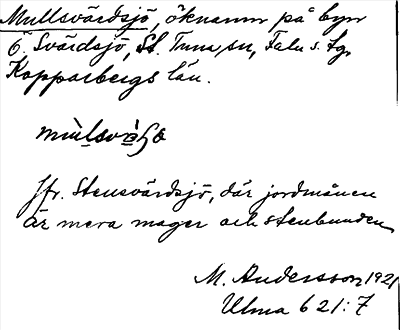 Mullsvärdsjö, öknamn på byn
Ö. Svärdsjö, St. Tuna sn, Falu s. tg.
Kopparbergs län.
Jfr. Stensvärdsjö, där jordmånen
är mera mager och stenbunden
M. Andersson 1921
Ulma 621:7